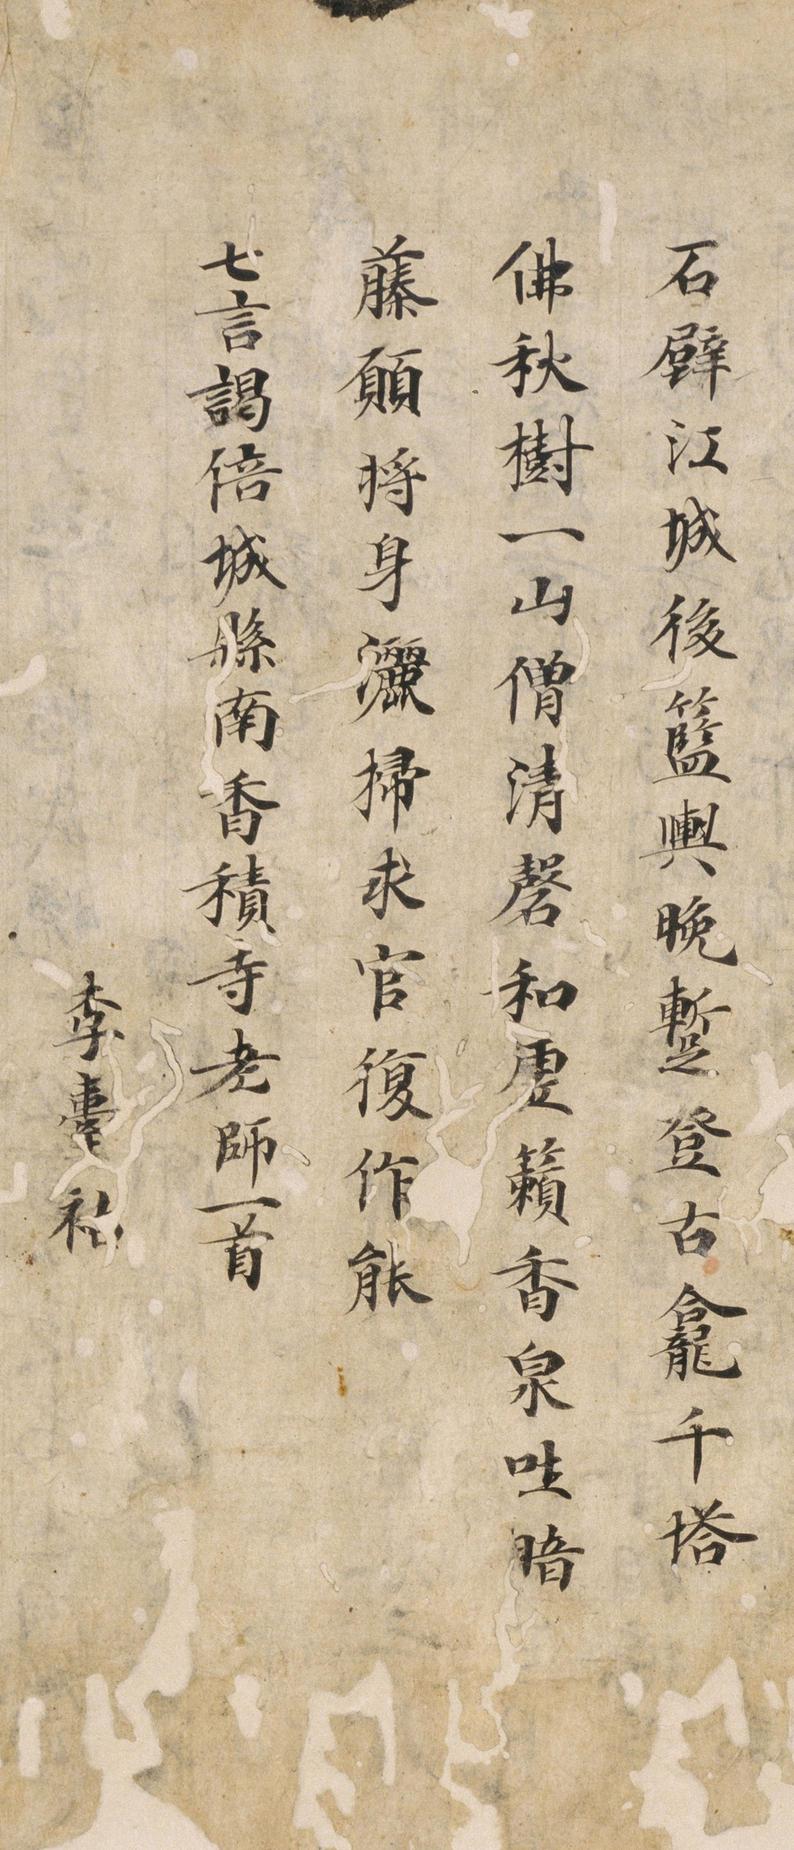 石壁江城後籃輿晚蹔登古龕千塔
佛秋樹一山僧清磬和虛籟香泉吐暗
藤願將身灑掃求官復作能
七言謁倍城縣南香積寺老師一首
李